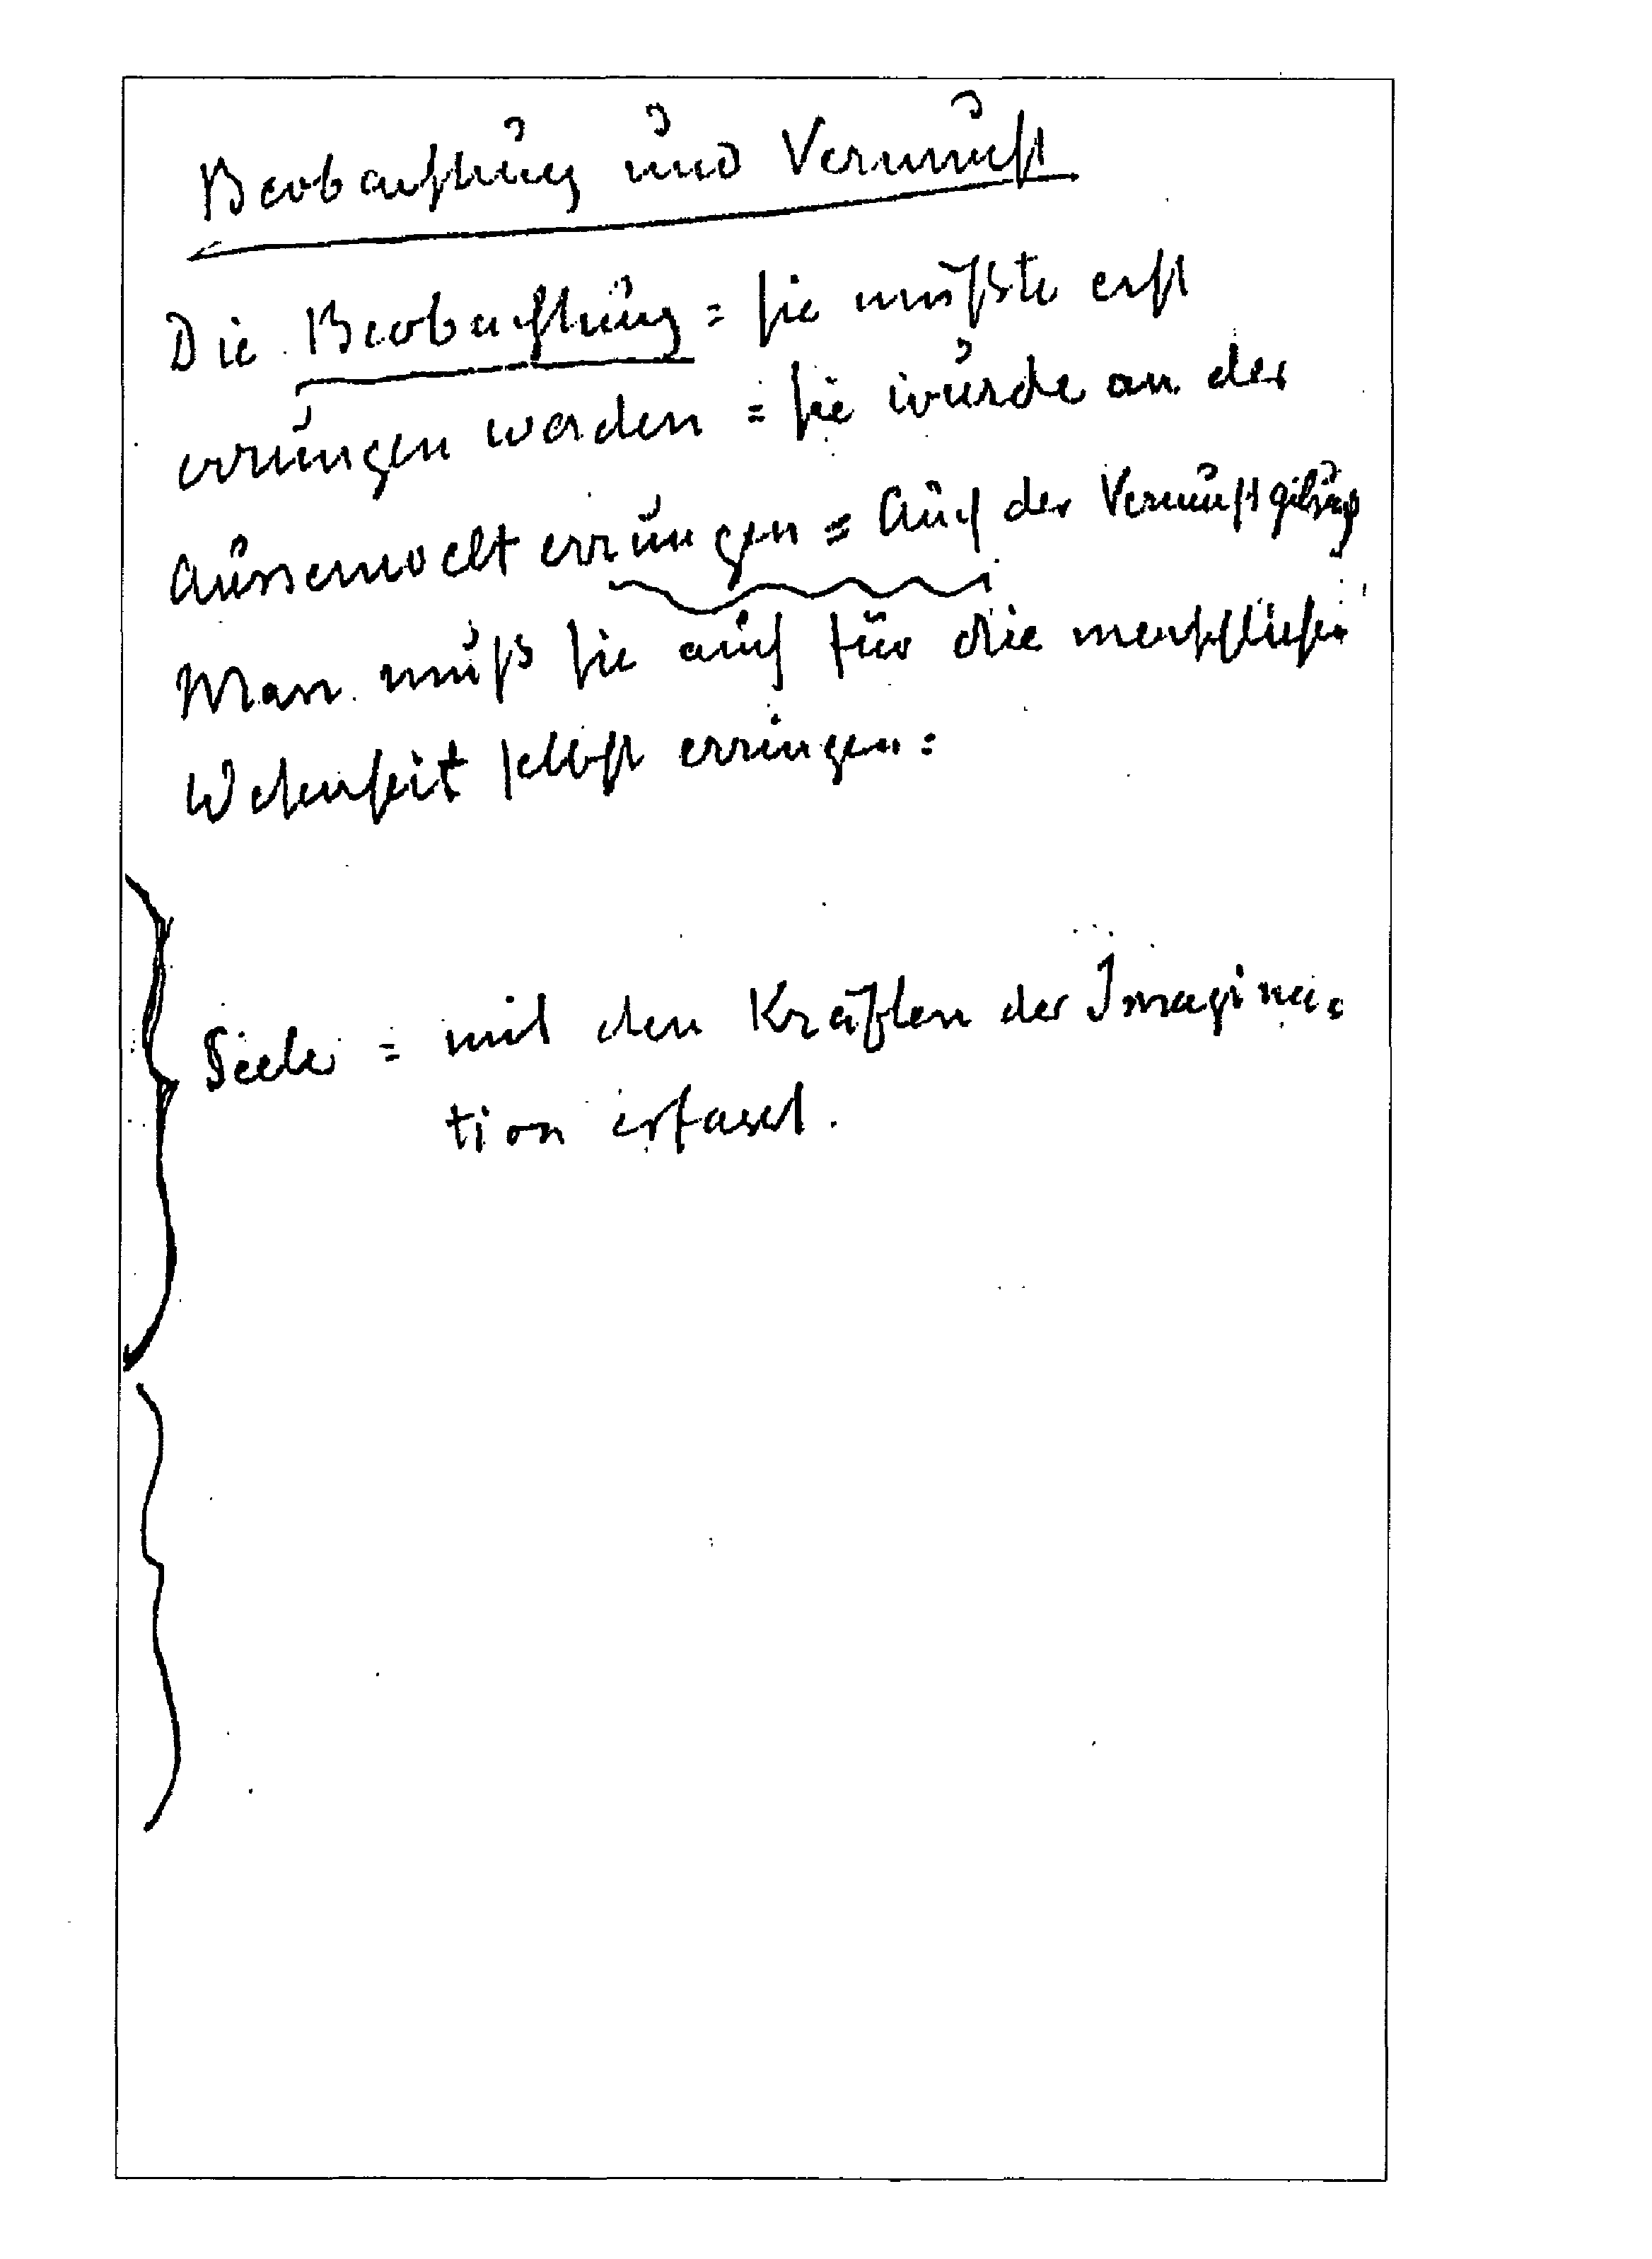 Beobachtung und Vernunft
Die Beobachtung = sie müßte erst
errungen werden = sie wurde an der
Aussenwelt errungen = Auch der Vernunft
Man muß sie auch für die menschliche
Wesenheit selbst erringen:
Seele = mit den Kräften der Imagina-
tion erfasst.